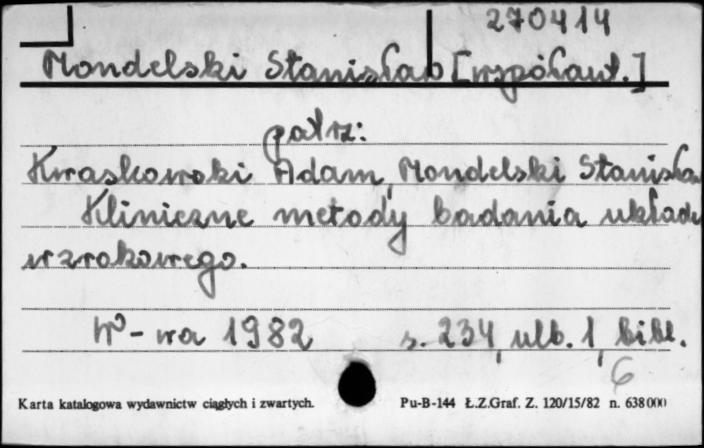 270414
Mondelski Stanisław [współaut.]
patrz:
Kwaskowski Adam, Mondelski Stanisła
Kliniczne metody badania układu
wzrokowego.
W-wa 1982 s. 234, ulb. 1, bibl.
6
Karta katalogowa wydawnictw ciągłych i zwartych. Pu-B-144 Ł.Z.Graf. Z. 120/15/82 n. 638000